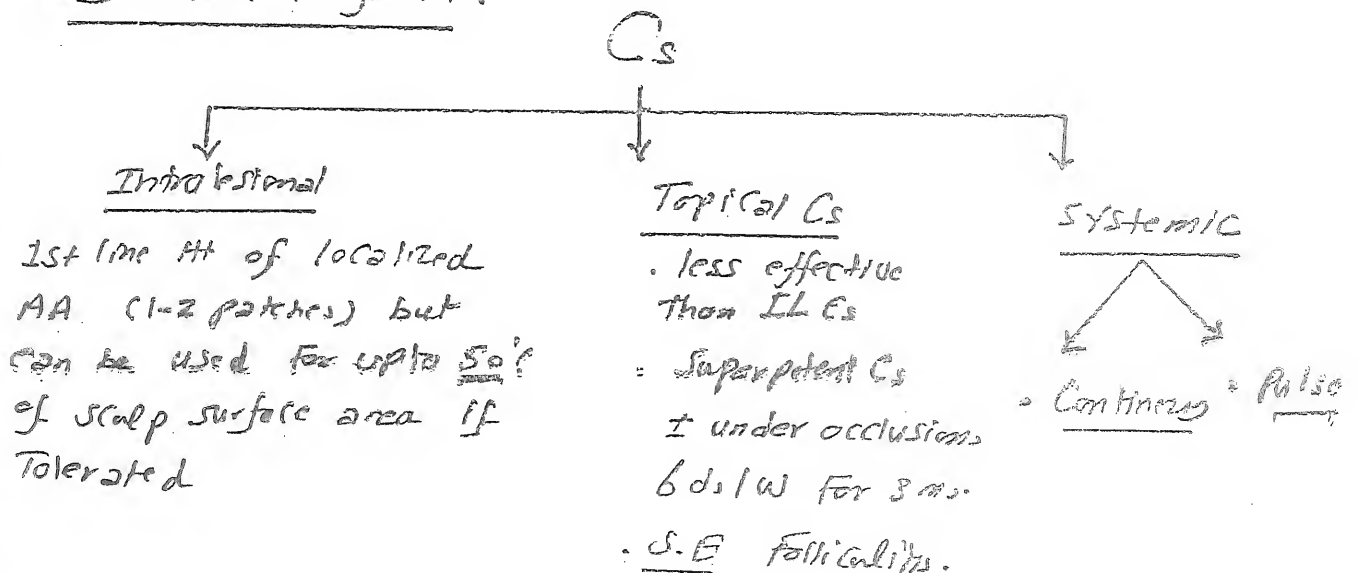 Cs
Intralesional
1st line ttt of localized
AA (1-2 patches) but
can be used for upto 50%
of scalp surface area if
Tolerated
Topical Cs
. less effective
Than IL Cs
. Superpotent Cs
± under occlusion
6 ds/w For 3 ms.
. S.E Folliculitis.
Systemic
. Continuous . Pulse